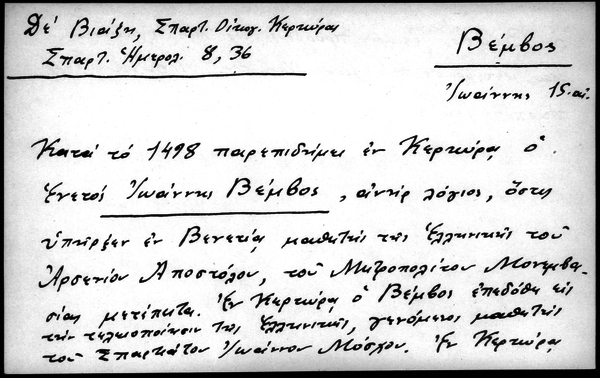 Δε Βιάζη, Σπαρτ. Οἰκογ. Κερκύρας
Σπαρτ. Ἡμερολ. 8, 36
Βέμβος
Ἰωάννης 15. αἰ.
Κατά τό 1498 παρεπιδήμει ἐν Κερκύρᾳ ὁ
Ἑνετός Ἰωάννης Βέμβος, ἀνήρ λόγιος, ὅστις
ὑπῆρξεν ἐν Βενετίᾳ μαθητής τῆς Ἑλληνικῆς τοῦ
Ἀρσενίου Ἀποστόλου, τοῦ Μητροπολίτου Μονεμβα-
σίας μετέπειτα. Ἐν Κερκύρᾳ ὁ Βέμβος ἐπεδόθη εἰς
τήν τελειοποίησιν τῆς Ἑλληνικῆς, γενόμενος μαθητής
τοῦ Σπαρτιάτου Ἰωάννου Μόσχου. Ἐν Κερκύρᾳ